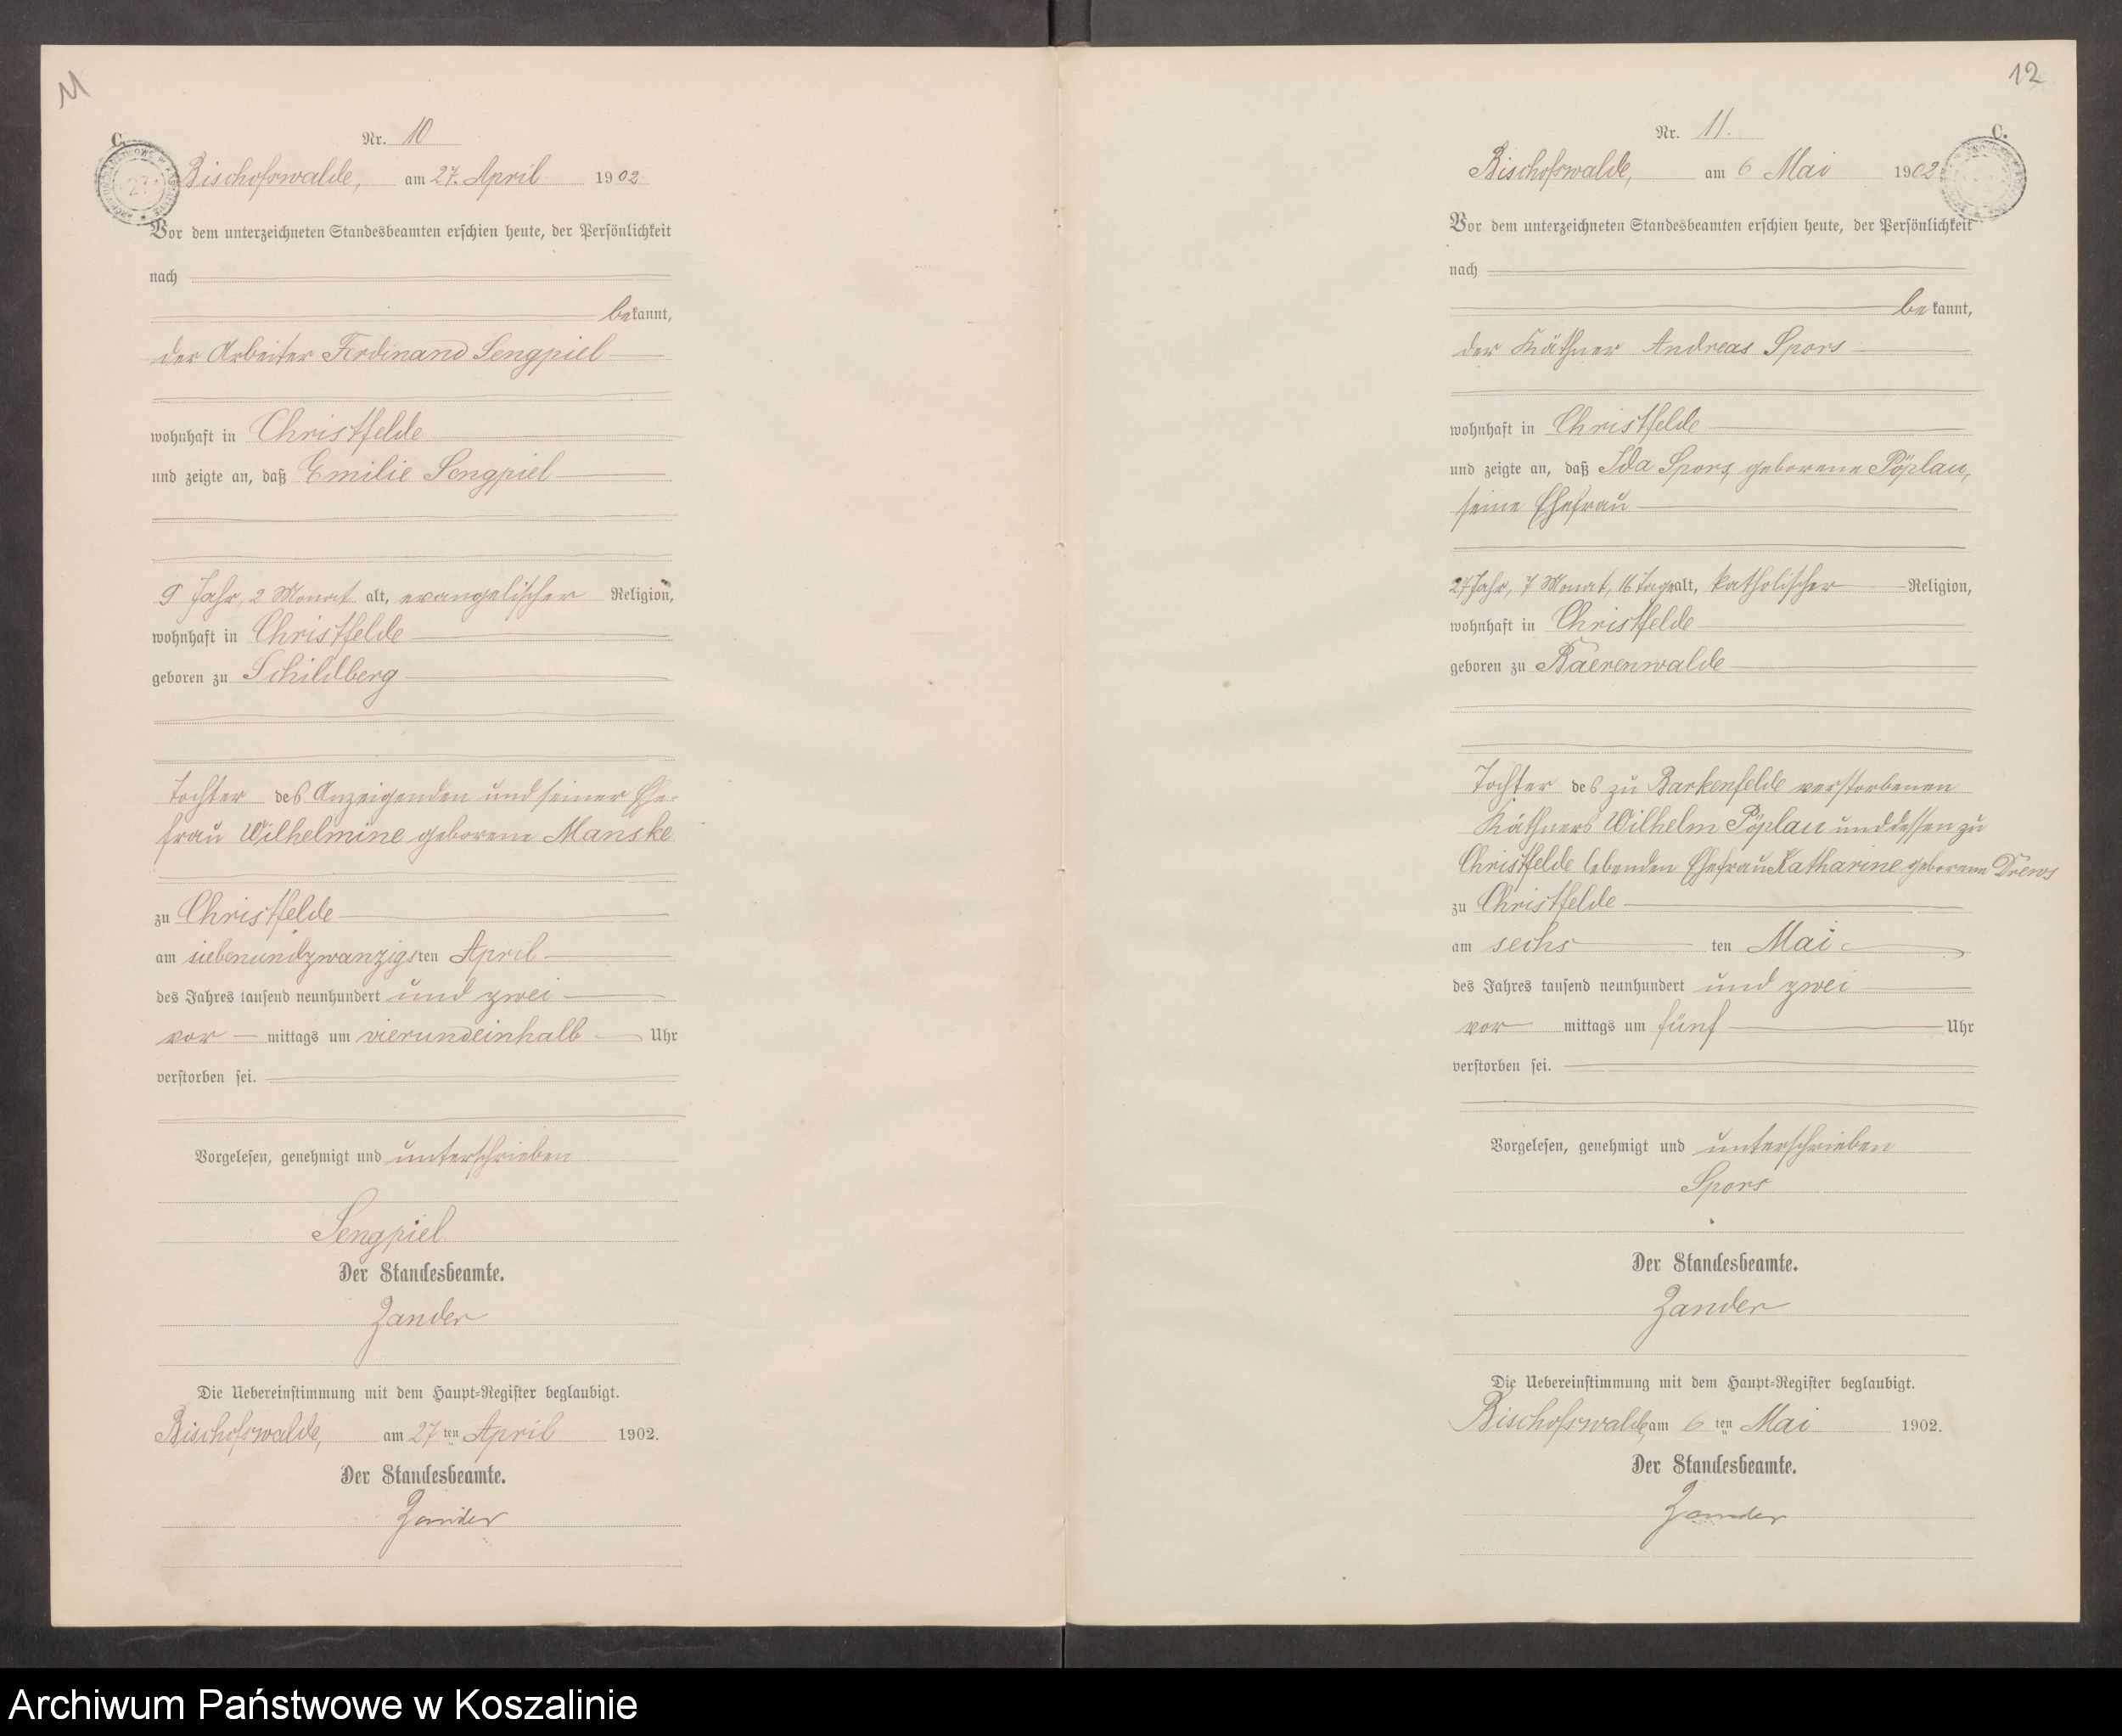 11
C.
Nr. 10
Bischofswalde, am 27. April 1902
Vor dem unterzeichneten Standesbeamten erschien heute, der Persönlichkeit
nach
bekannt,
der Arbeiter Ferdinand Sengpiel
wohnhaft in Christfelde
und zeigte an, daß Emilie Sengpiel
9 Jahr, 2 Monat alt, evangelischer Religion,
wohnhaft in Christfelde
geboren zu Schildberg
Tochter des Anzeigenden und seiner Ehe-
frau Wilhelmine geborene Manske
zu Christfelde
am siebenundzwanzigsten April
des Jahres tausend neunhundert und zwei
vor mittags um vierundeinhalb Uhr
verstorben sei.
Vorgelesen, genehmigt und unterschrieben
Sengpiel
Der Standesbeamte.
Zander
Die Uebereinstimmung mit dem Haupt-Register beglaubigt.
Bischofswalde, am 27ten April 1902.
Der Standesbeamte.
Zander
12
C.
Nr. 11.
Bischofswalde, am 6 Mai 1902
Vor dem unterzeichneten Standesbeamten erschien heute, der Persönlichkeit
nach
bekannt,
der Käthner Andreas Spors
wohnhaft in Christfelde
und zeigte an, daß Ida Spors, geborene Pöplau,
seine Ehefrau
Jahr, 7 Monat, 16 Tage alt, katholischer Religion,
wohnhaft in Christfelde
geboren zu Baerenwalde
Tochter des zu Barkenfelde verstorbenen
Käthners Wilhelm Pöplau und dessen zu
Christfelde lebenden Ehefrau Katharine geborene Drews
zu Christfelde
am sechsten Mai
des Jahres tausend neunhundert und zwei
vor mittags um fünf Uhr
verstorben sei.
Vorgelesen, genehmigt und unterschrieben
Spors
Der Standesbeamte.
Zander
Die Uebereinstimmung mit dem Haupt-Register beglaubigt.
Bischofswalde, am 6ten Mai 1902.
Der Standesbeamte.
Zander
Archiwum Państwowe w Koszalinie